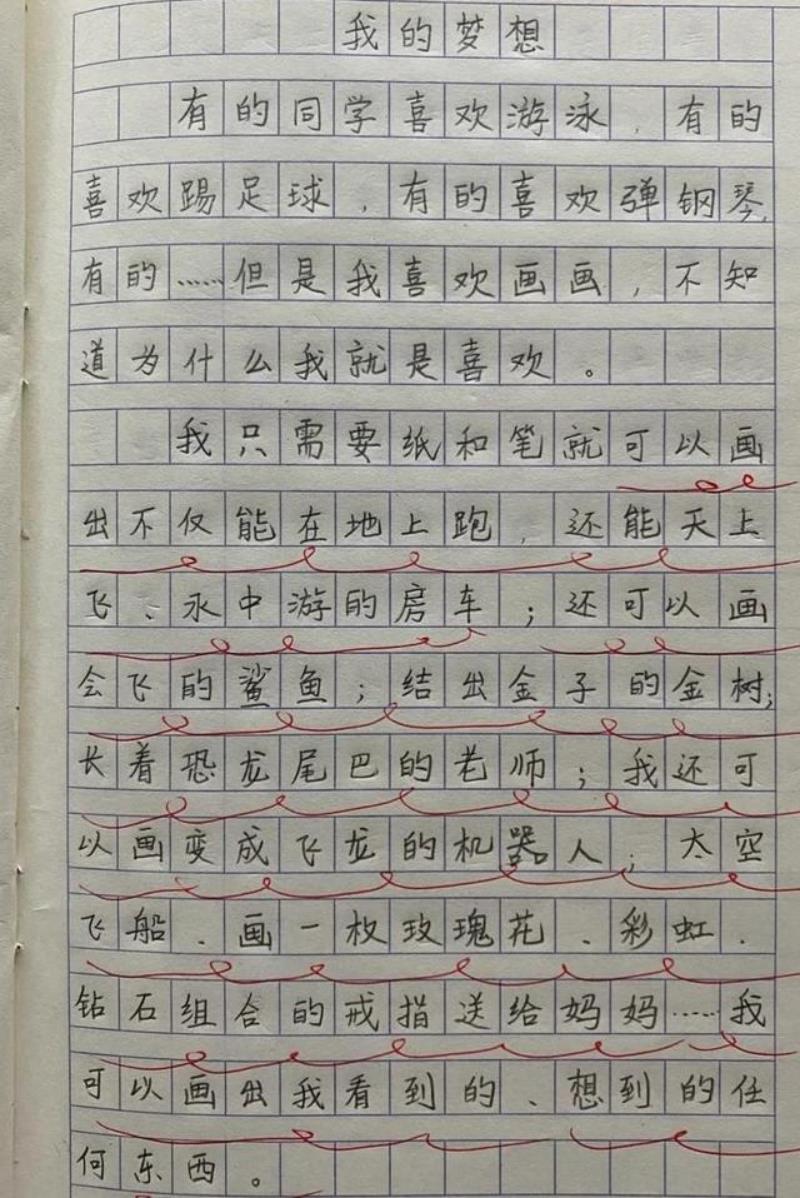 我的梦想
有的同学喜欢游泳，有的
喜欢踢足球，有的喜欢弹钢琴，
有的……但是我喜欢画画，不知
道为什么我就是喜欢。
我只需要纸和笔就可以画
出不仅能在地上跑，还能天上
飞、水中游的房车；还可以画
会飞的鲨鱼；结出金子的金树；
长着恐龙尾巴的老师；我还可
以画变成飞龙的机器人；太空
飞船、画一枚玫瑰花、彩虹、
钻石组合的戒指送给妈妈……我
可以画出我看到的、想到的任
何东西。